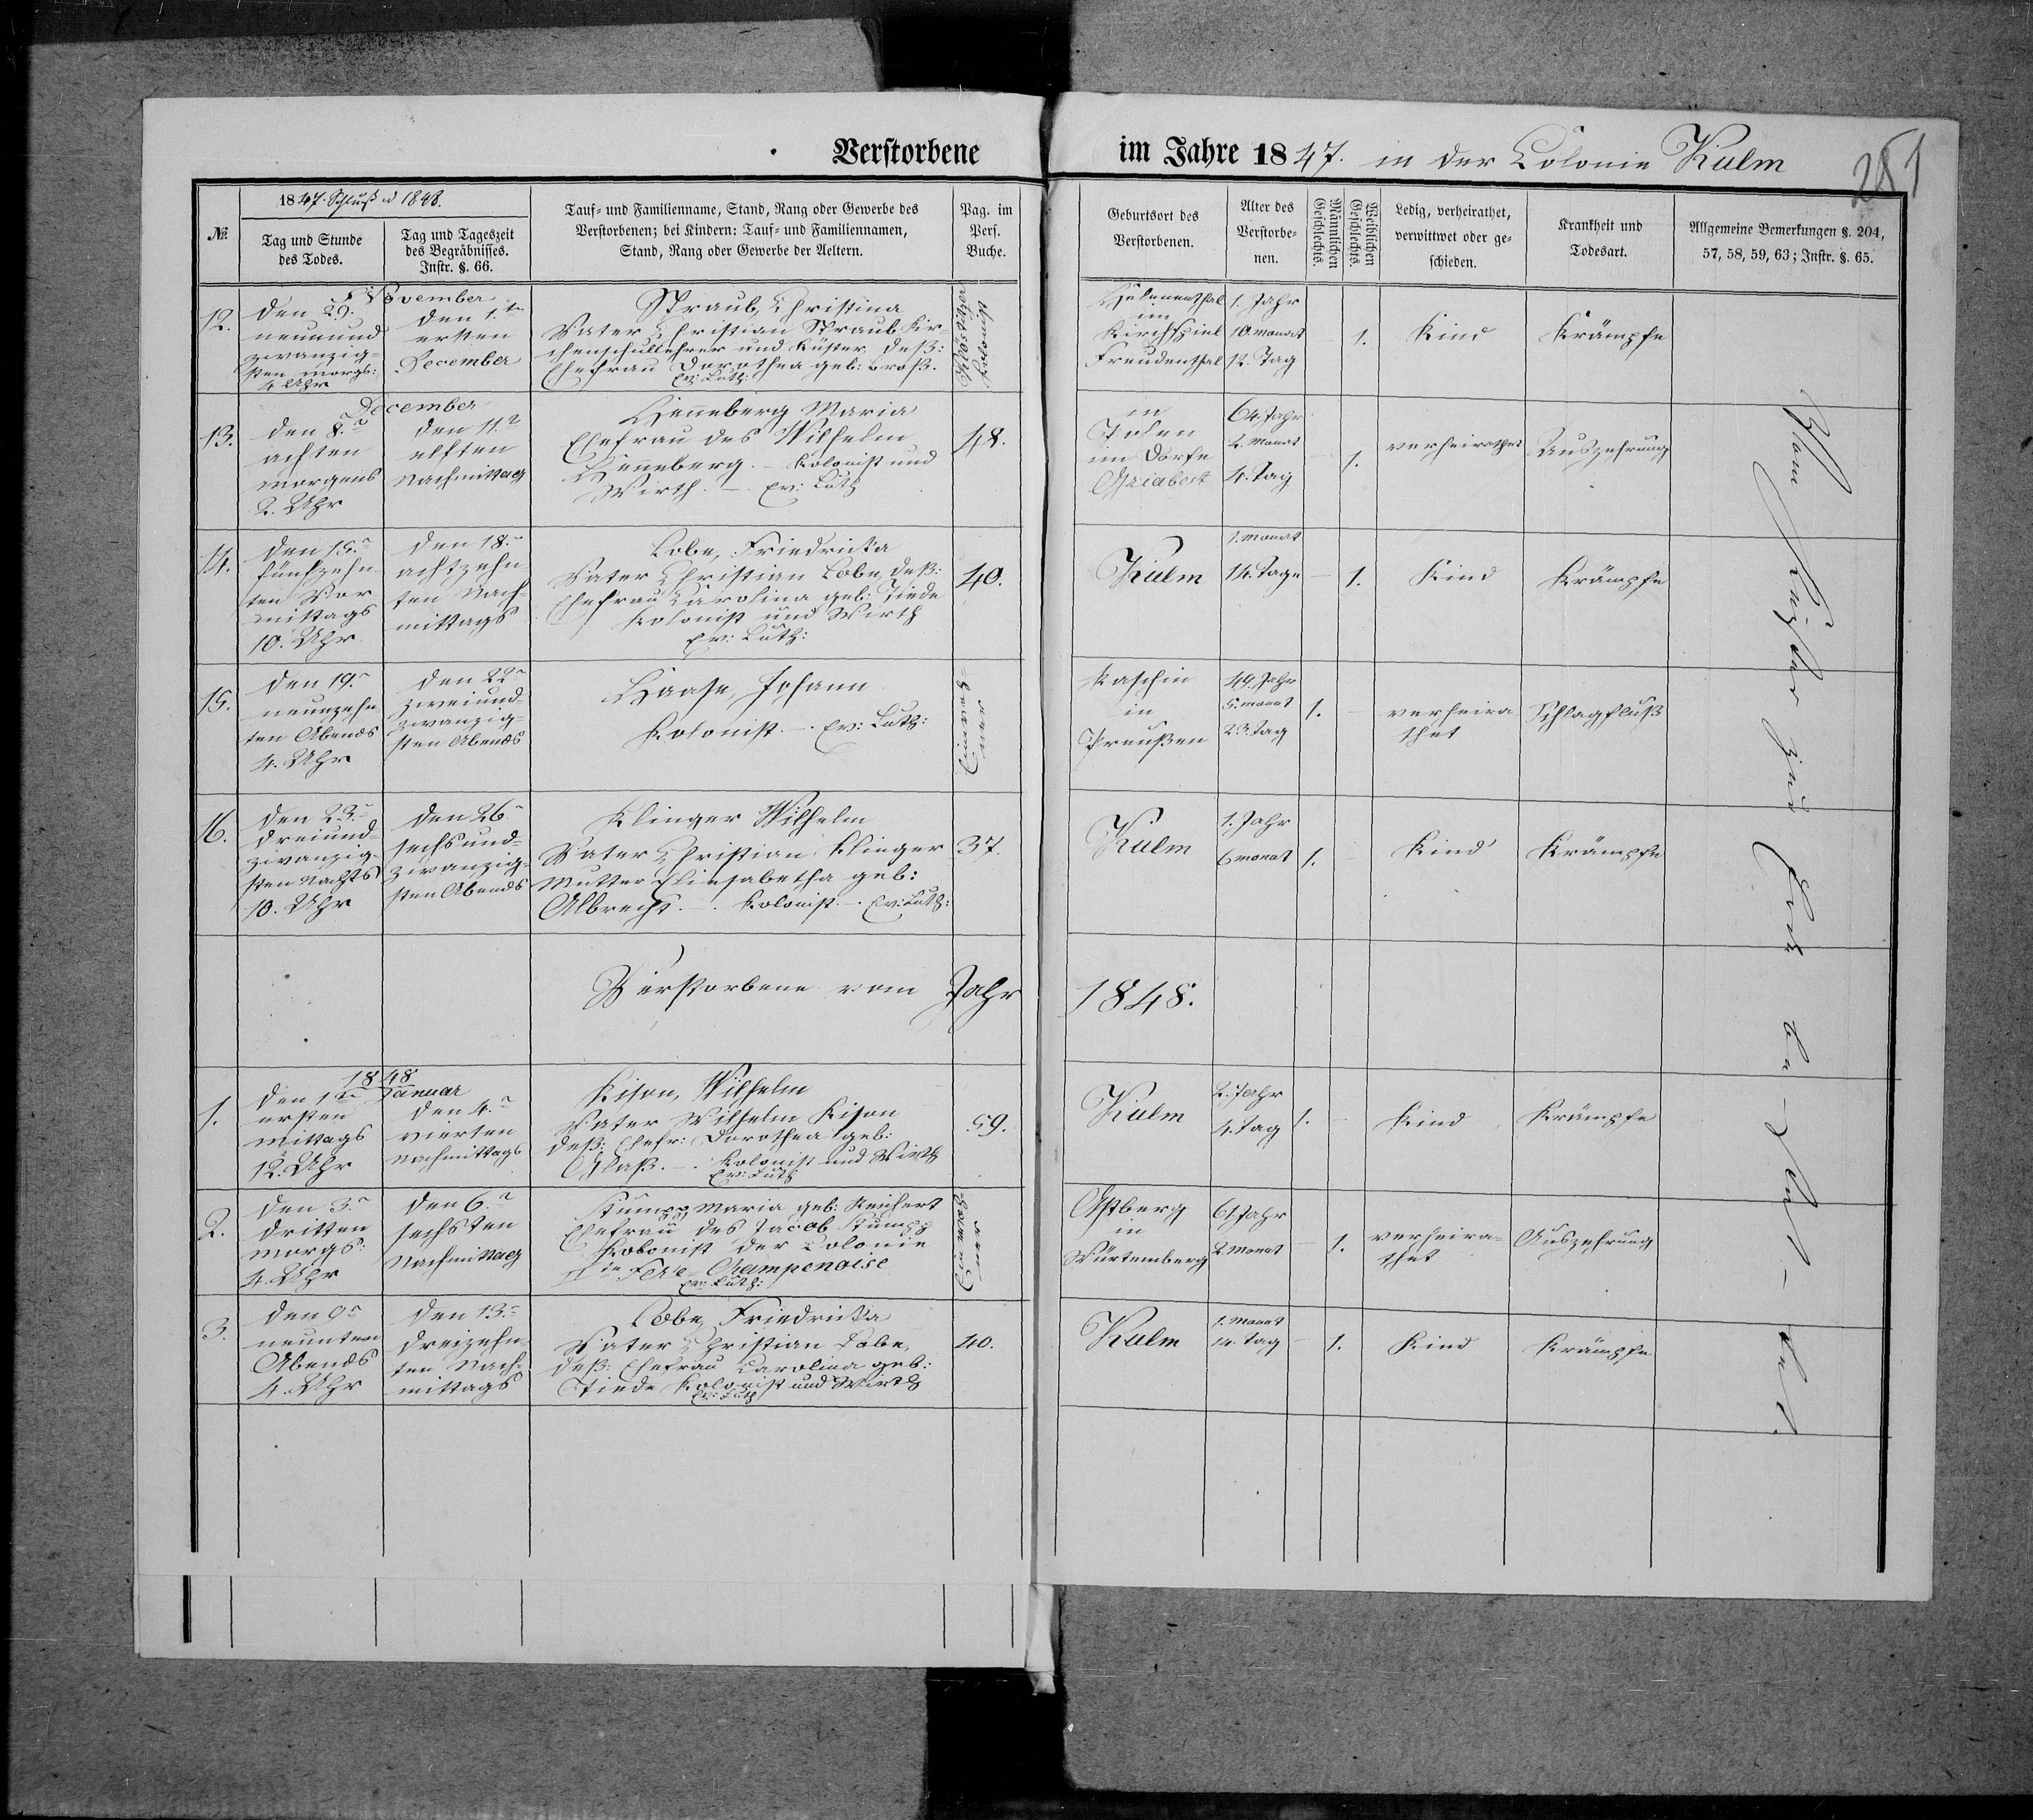 Verstorbene im Jahre 1847. in der Colonie Kulm
281
№
1847. Schluß u 1848.
Tag und Stunde
des Todes.
Tag und Tageszeit
des Begräbnisses.
Instr. §. 66.
Tauf- und Familienname, Stand, Rang oder Gewerbe des
Verstorbenen; bei Kindern: Tauf- und Familiennamen,
Stand, Rang oder Gewerbe der Aeltern.
Pag. im
Pers.
Buche.
Geburtsort des
Verstorbenen.
Alter des
Verstorbe-
nen.
Männlichen
Geschlechts.
Weiblichen
Geschlechts.
Ledig, verheirathet,
verwittwet oder ge-
schieden.
Krankheit und
Todesart.
Allgemeine Bemerkungen §. 204,
57, 58, 59, 63; Instr. §. 65.
12.
November
den 29.
neunund
zwanzig-
sten morgs:
4 Uhr
den 1.ten
ersten
December
Straub, Christina
Vater Christian Straub Kir-
chenschullehrer und Küster deß:
Ehefrau Dorothea geb: Groß.
Ev: Luth:
Kolonist
Helenenthal
im
Kirchspiel
Freudenthal
1. Jahr
10. monat
12. Tag
1.
Kind
Krämpfe
13.
December
den 8.n
achten
morgens
2. Uhr
den 11.n
elften
Nachmittag
Henneberg Maria
Ehefrau des Wilhelm
Henneberg. – Kolonist und
Wirth. – Ev: Luth
48.
in
Polen
im Dorfe
64. Jahr
2. Monat
4. Tag
1.
verheirathet
Auszehrung
14.
den 15.n
fünfzehn
ten Vor
mittags
10. Uhr
den 18.n
achtzehn
ten Nach-
mittags
Lobe, Friedricka
Vater Christian Lobe, deß:
Ehefrau Carolina geb: Tiede
Kolonist und Wirth
Ev: Luth:
40.
Kulm
1. monat
14. Tage
1.
Kind
Krämpfe
15.
den 19.n
neunzehn
ten Abends
4. Uhr
den 22n
zweiund-
zwanzig-
sten Abends
Haase, Johann
Kolonist. – Ev: Luth:
Einwoh-
ner
Kaschin
in
Preußen
49. Jahr
5. monat
23. Tag
1.
verheira
thet
Schlagfluß
16.
den 23.n
dreiund-
zwanzig-
sten Nachts
10. Uhr
den 26n
sechsund-
zwanzig-
sten Abends
Klinger Wilhelm
Vater Christian Klinger
Mutter Eliesabetha geb:
Albrecht. – Kolonist. – Ev: Luth:
37.
Kulm
1. Jahr
6 monat
1.
Kind
Krämpfe
Verstorbene vom Jahr 1848.
1.
1848
Januar
den 1ten
ersten
mittags
12. Uhr
den 4.n
vierten
Nachmittags
Kison, Wilhelm
Vater Wilhelm Kison
deß: Ehefr: Dorothea geb:
Glaß. – Kolonist und Wirth
Ev: Luth
59.
Kulm
2. Jahr
4. Tag
1.
Kind
Krämpfe
2.
den 3.n
dritten
morgs:
4. Uhr
den 6.n
sechsten
Nachmittag
Stumpp Maria geb: Reichert
Ehefrau des Jacob Stumpp
Kolonist der Colonie
in Fere-Champenoise
Ev: Luth:
Einwoh-
ner
in
Würtemberg
61 Jahr
2. Monat
1.
verheira-
thet
Auszehrung
3.
den 9n
neunten
Abends
4. Uhr
den 13.n
dreizehn
ten Nach-
mittags
Lobe, Friedricka
Vater Christian Lobe,
deß: Ehefrau Carolina geb:
Tiede Kolonist und Wirth
Ev: Luth
40.
Kulm
1. Monat
14. Tag
1.
Kind
Krämpfe